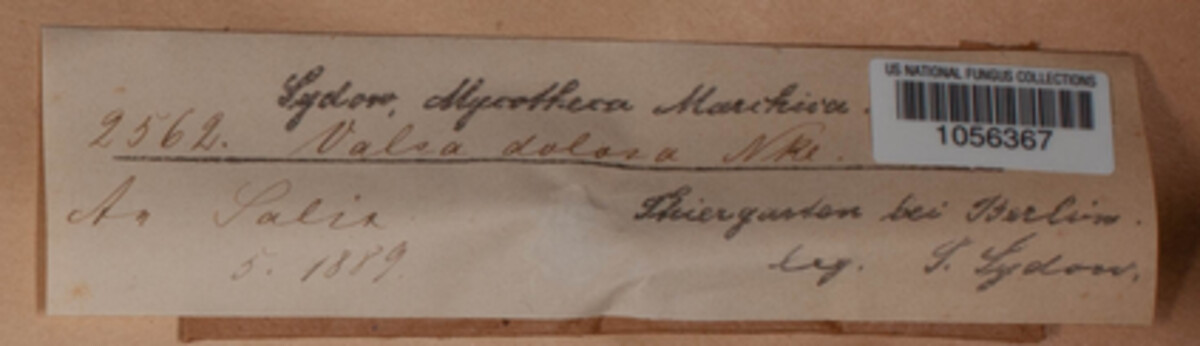 Sydow, Mycotheca Marchica.
US NATIONAL FUNGUS COLLECTIONS
1056367
2562. Valsa dolosa Nke.
An Salix
Thiergarten bei Berlin.
5. 1889.
leg. P. Sydow.